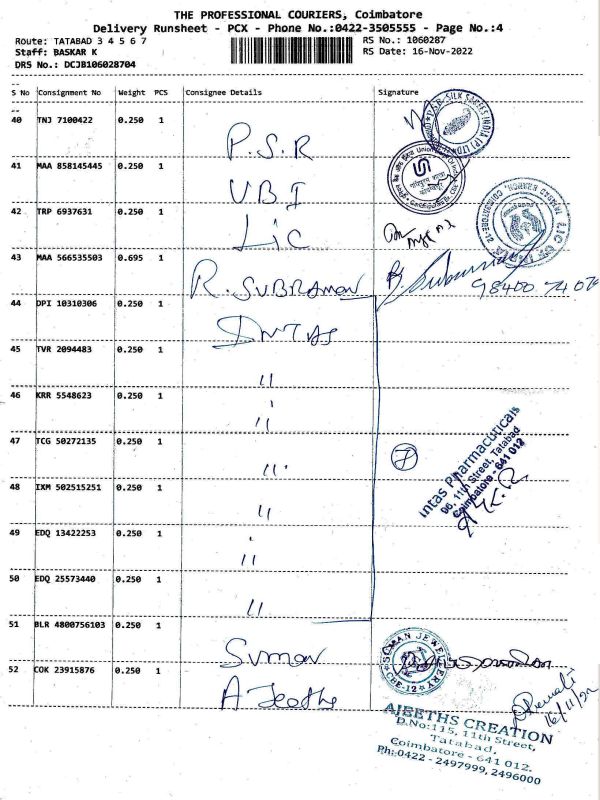 THE PROFESSIONAL COURIERS, Coimbatore
Delivery Runsheet - PCX - Phone No.:0422-3505555 - Page No.:4
Route: TATABAD 3 4 5 6 7
RS No.: 1060287
Staff: BASKAR K
RS Date: 16-Nov-2022
DRS No.: DCJB106028704
S No Consignment No Weight PCS Consignee Details Signature
40 TNJ 7100422 0.250 1 P.S.R
41 MAA 858145445 0.250 1 UBI
42 TRP 6937631 0.250 1 Lic
43 MAA 566535503 0.695 1 R. SUBRAMAN
98400
44 DPI 10310306 0.250 1 INTAS
45 TVR 2094483 0.250 1 "
46 KRR 5548623 0.250 1 "
47 TCG 50272135 0.250 1 "
7
Intas Pharmacuticals
96, 11th Street, Tatabad
Coimbatore - 641 012
48 IXM 502515251 0.250 1 "
49 EDQ 13422253 0.250 1 "
50 EDQ 25573440 0.250 1 "
51 BLR 4800756103 0.250 1 Suman
SUMAN JEWELLERY
CBE-12
52 COK 23915876 0.250 1 A Jeeths
16/11/22
AJEETHS CREATION
D.No:115, 11th Street,
Tatabad,
Coimbatore - 641 012.
Ph:0422 - 2497999, 2496000